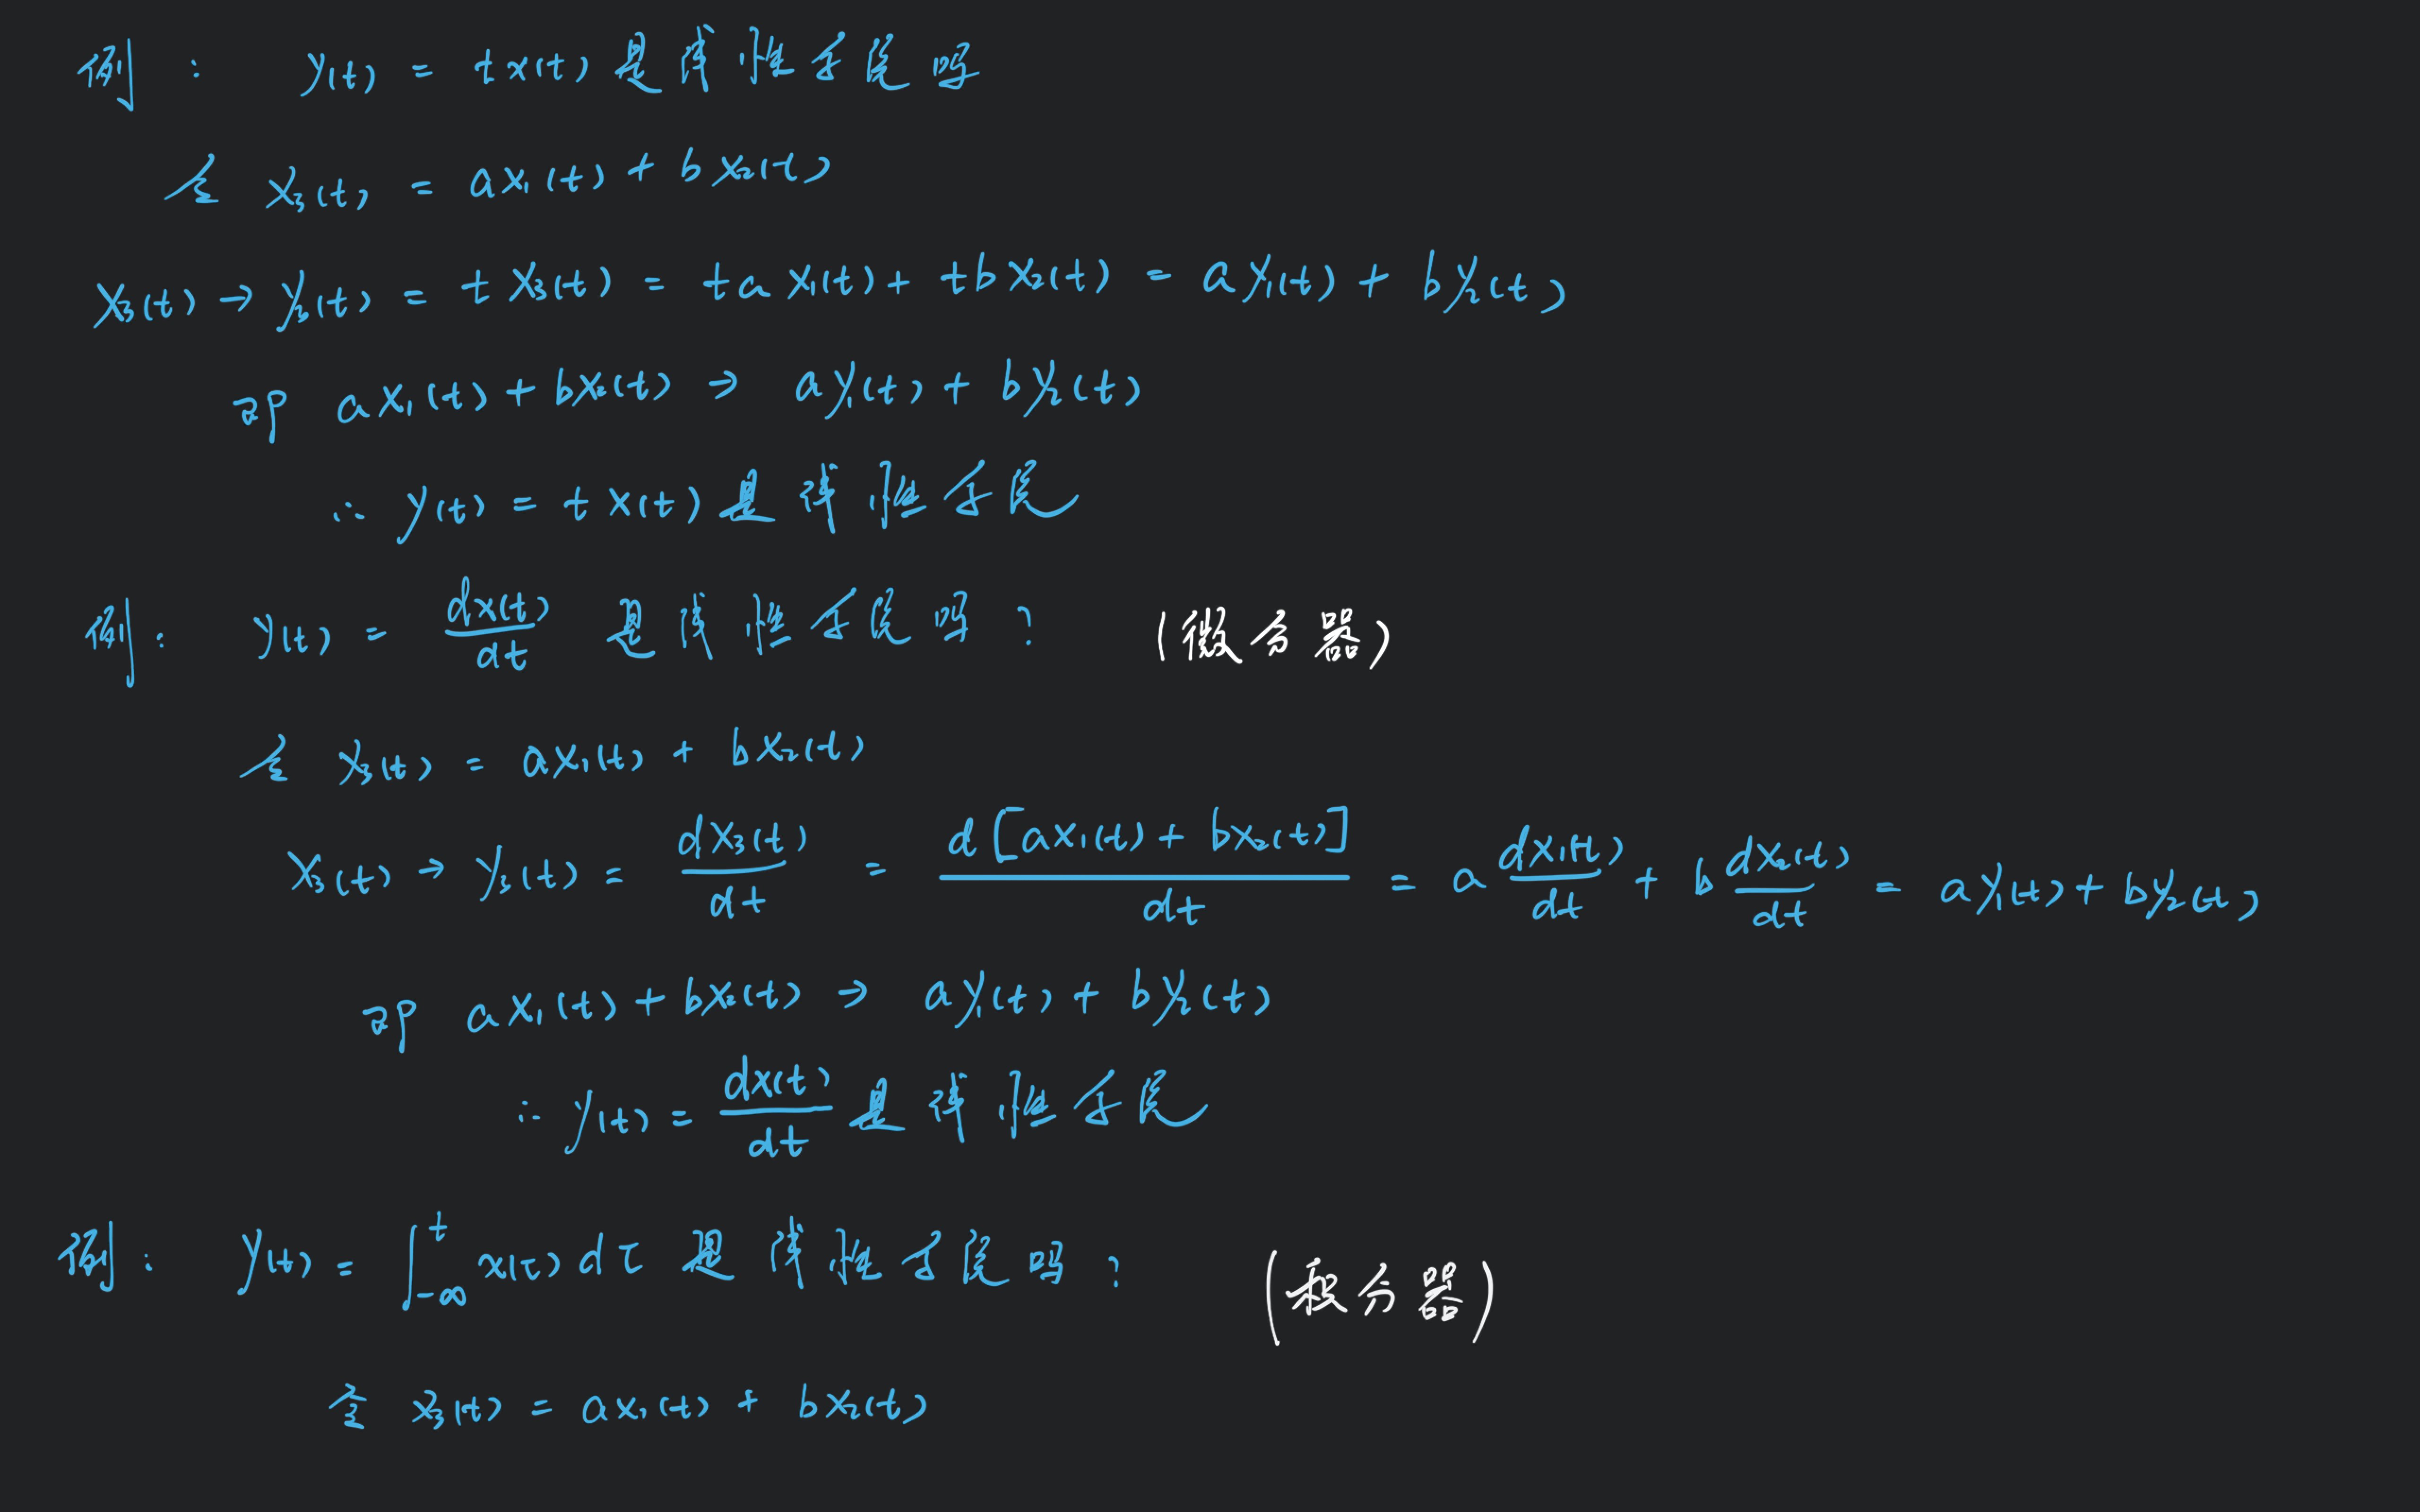 例： y(t) = tx(t) 是线性系统吗
令 x₃(t) = ax₁(t) + bx₂(t)
x₃(t) → y₃(t) = tx₃(t) = tax₁(t) + tbx₂(t) = ay₁(t) + by₂(t)
即 ax₁(t) + bx₂(t) → ay₁(t) + by₂(t)
∴ y(t) = tx(t) 是线性系统
例： y(t) = dx(t)/dt 是线性系统吗？ (微分器)
令 x₃(t) = ax₁(t) + bx₂(t)
x₃(t) → y₃(t) = dx₃(t)/dt = d[ax₁(t) + bx₂(t)]/dt = a dx₁(t)/dt + b dx₂(t)/dt = ay₁(t) + by₂(t)
即 ax₁(t) + bx₂(t) → ay₁(t) + by₂(t)
∴ y(t) = dx(t)/dt 是线性系统
例： y(t) = ∫_{-∞}^{t} x(τ)dτ 是线性系统吗？ (积分器)
令 x₃(t) = ax₁(t) + bx₂(t)